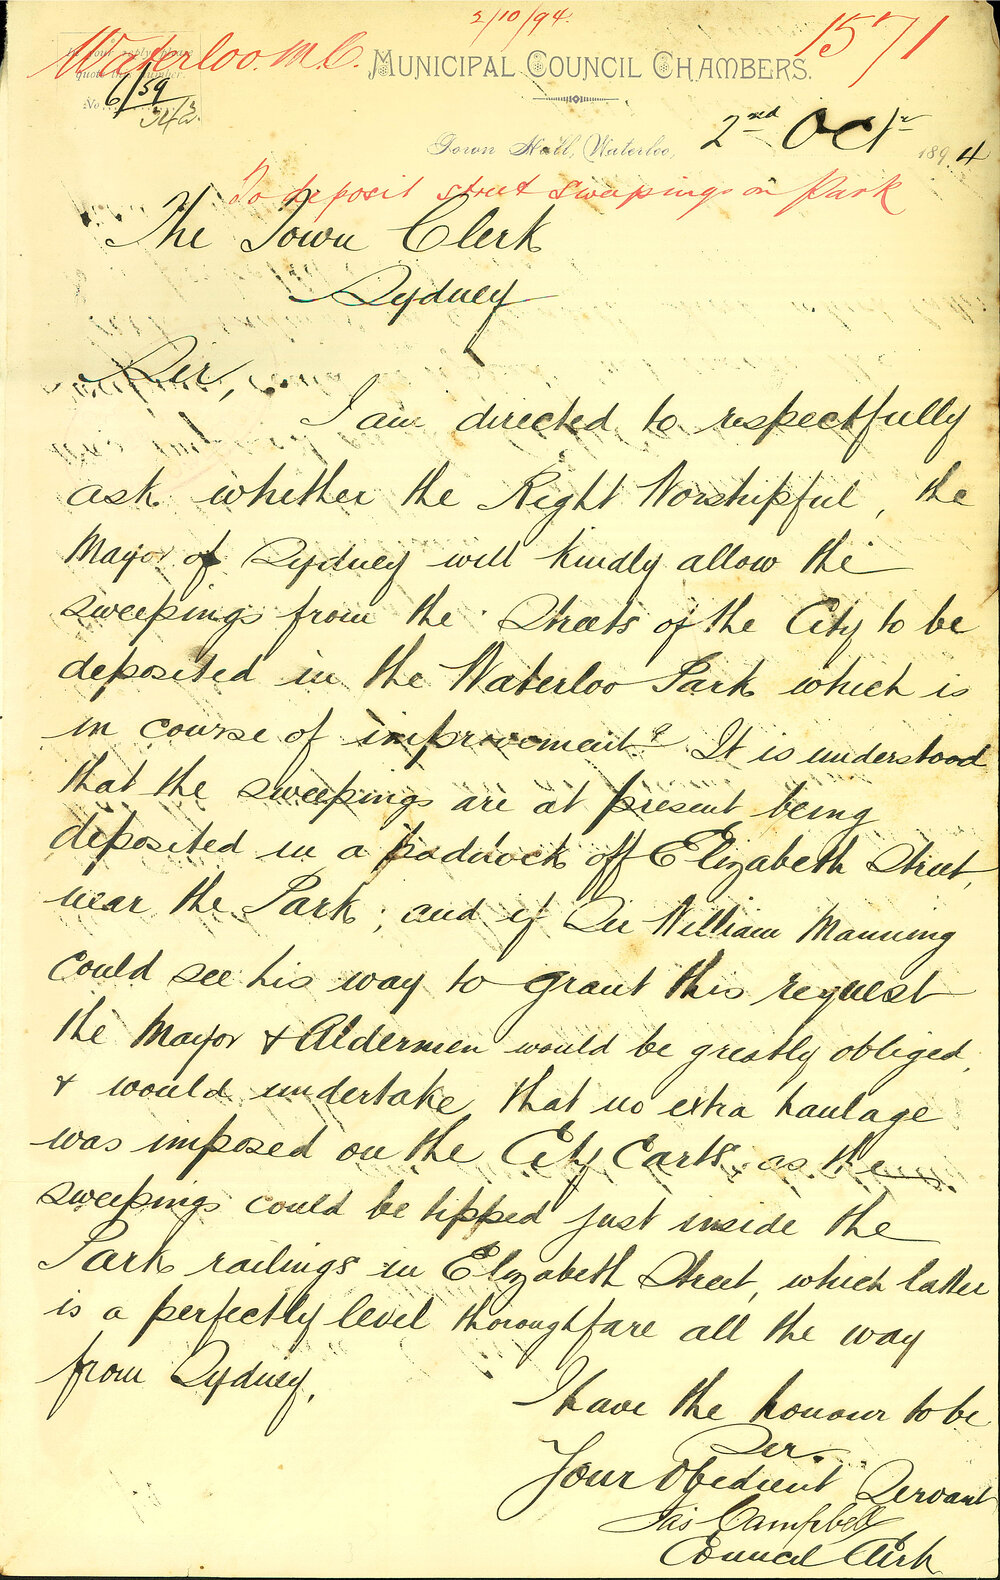 2/10/94.
1571
Waterloo. M. C.
In your reply please
quote this number.
No. 6/59
MUNICIPAL COUNCIL CHAMBERS.
Town Hall, Waterloo, 2nd Octr 1894
To deposit street sweepings on Park
The Town Clerk
Sydney
Sir,
I am directed to respectfully
ask whether the Right Worshipful, the
Mayor of Sydney will kindly allow the
sweepings from the Streets of the City to be
deposited in the Waterloo Park which is
in course of improvement? It is understood
that the sweepings are at present being
deposited in a paddock off Elizabeth Street,
near the Park; and if Sir William Manning
could see his way to grant this request
the Mayor & Aldermen would be greatly obliged,
& would undertake that no extra haulage
was imposed on the City Carts, as the
sweepings could be tipped just inside the
Park railings in Elizabeth Street, which latter
is a perfectly level thoroughfare all the way
from Sydney.
I have the honour to be
Sir.
Your Obedient Servant
Jas Campbell
Council Clerk